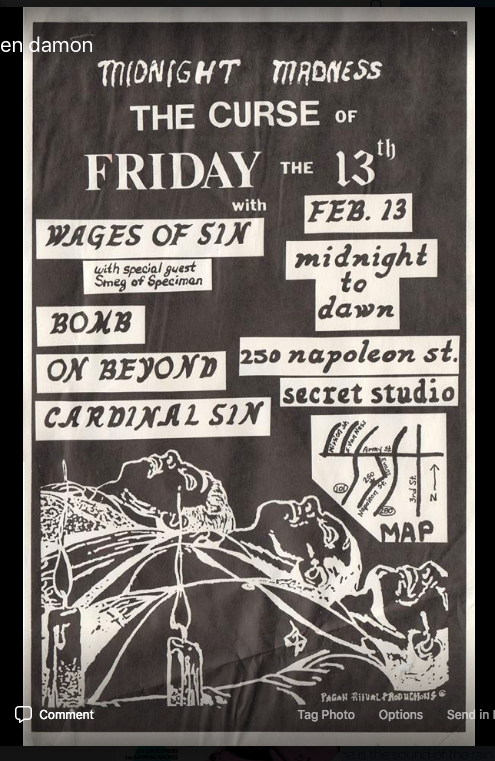 en damon
MIDNIGHT MADNESS
THE CURSE OF
FRIDAY THE 13th
with
FEB. 13
WAGES OF SIN
with special guest
Smeg of Speciman
midnight
to
dawn
BOMB
ON BEYOND
250 napoleon st.
secret studio
CARDINAL SIN
Army St
3rd St.
250
Napoleon St.
101
280
N
MAP
PAGAN RITUAL PRODUCTIONS ©
Comment
Tag Photo Options Send in